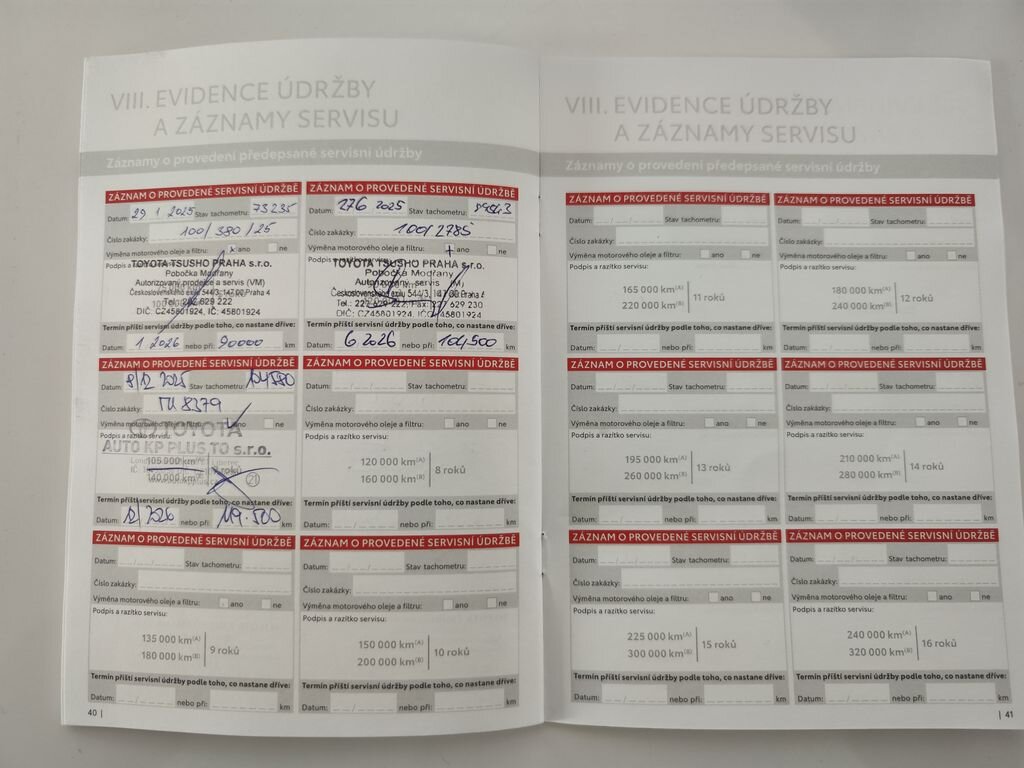 VIII. EVIDENCE ÚDRŽBY
A ZÁZNAMY SERVISU
Záznamy o provedení předepsané servisní údržby
ZÁZNAM O PROVEDENÉ SERVISNÍ ÚDRŽBĚ
Datum: 29 1 2025 Stav tachometru: 73235
Číslo zakázky: 100/380/25
Výměna motorového oleje a filtru: x ano ne
Podpis a
TOYOTA TSUSHO PRAHA s.r.o.
Pobočka Modřany
Autorizovaný prodejce a servis (VM)
Československého exilu 544/3, 147 00 Praha 4
Tel.: 222 629 222
DIČ: CZ45801924, IČ: 45801924
Termín příští servisní údržby podle toho, co nastane dříve:
Datum: 1 2026 nebo při: 90000 km
ZÁZNAM O PROVEDENÉ SERVISNÍ ÚDRŽBĚ
Datum: 27 6 2025 Stav tachometru:
Číslo zakázky: 100/2785
Výměna motorového oleje a filtru: + ano ne
TOYOTA TSUSHO PRAHA s.r.o.
Pobočka Modřany
Autorizovaný servis (VM)
Československého exilu 544/3, 147 00 Praha 4
DIČ: CZ45801924, IČ: 45801924
Termín příští servisní údržby podle toho, co nastane dříve:
Datum: 6 2026 nebo při: 104500 km
ZÁZNAM O PROVEDENÉ SERVISNÍ ÚDRŽBĚ
Datum: 8/12 2025 Stav tachometru: 104580
Číslo zakázky: 8379
Výměna motorového oleje a filtru: ano ne
Podpis a razítko servisu:
TOYOTA
AUTO KP PLUS TO s.r.o.
105 000 km(A)
140 000 km(B)
21
Termín příští servisní údržby podle toho, co nastane dříve:
Datum: 12/2026 nebo při: 119.500 km
ZÁZNAM O PROVEDENÉ SERVISNÍ ÚDRŽBĚ
Datum: Stav tachometru:
Číslo zakázky:
Výměna motorového oleje a filtru: ano ne
Podpis a razítko servisu:
120 000 km(A)
160 000 km(B)
8 roků
Termín příští servisní údržby podle toho, co nastane dříve:
Datum: nebo při: km
ZÁZNAM O PROVEDENÉ SERVISNÍ ÚDRŽBĚ
Datum: Stav tachometru:
Číslo zakázky:
Výměna motorového oleje a filtru: ano ne
Podpis a razítko servisu:
135 000 km(A)
180 000 km(B)
9 roků
Termín příští servisní údržby podle toho, co nastane dříve:
Datum: nebo při: km
ZÁZNAM O PROVEDENÉ SERVISNÍ ÚDRŽBĚ
Datum: Stav tachometru:
Číslo zakázky:
Výměna motorového oleje a filtru: ano ne
Podpis a razítko servisu:
150 000 km(A)
200 000 km(B)
10 roků
Termín příští servisní údržby podle toho, co nastane dříve:
Datum: nebo při: km
40 |
VIII. EVIDENCE ÚDRŽBY
A ZÁZNAMY SERVISU
Záznamy o provedení předepsané servisní údržby
ZÁZNAM O PROVEDENÉ SERVISNÍ ÚDRŽBĚ
Datum: Stav tachometru:
Číslo zakázky:
Výměna motorového oleje a filtru: ano ne
Podpis a razítko servisu:
165 000 km(A)
220 000 km(B)
11 roků
Termín příští servisní údržby podle toho, co nastane dříve:
Datum: nebo při: km
ZÁZNAM O PROVEDENÉ SERVISNÍ ÚDRŽBĚ
Datum: Stav tachometru:
Číslo zakázky:
Výměna motorového oleje a filtru: ano ne
Podpis a razítko servisu:
180 000 km(A)
240 000 km(B)
12 roků
Termín příští servisní údržby podle toho, co nastane dříve:
Datum: nebo při: km
ZÁZNAM O PROVEDENÉ SERVISNÍ ÚDRŽBĚ
Datum: Stav tachometru:
Číslo zakázky:
Výměna motorového oleje a filtru: ano ne
Podpis a razítko servisu:
195 000 km(A)
260 000 km(B)
13 roků
Termín příští servisní údržby podle toho, co nastane dříve:
Datum: nebo při: km
ZÁZNAM O PROVEDENÉ SERVISNÍ ÚDRŽBĚ
Datum: Stav tachometru:
Číslo zakázky:
Výměna motorového oleje a filtru: ano ne
Podpis a razítko servisu:
210 000 km(A)
280 000 km(B)
14 roků
Termín příští servisní údržby podle toho, co nastane dříve:
Datum: nebo při: km
ZÁZNAM O PROVEDENÉ SERVISNÍ ÚDRŽBĚ
Datum: Stav tachometru:
Číslo zakázky:
Výměna motorového oleje a filtru: ano ne
Podpis a razítko servisu:
225 000 km(A)
300 000 km(B)
15 roků
Termín příští servisní údržby podle toho, co nastane dříve:
Datum: nebo při: km
ZÁZNAM O PROVEDENÉ SERVISNÍ ÚDRŽBĚ
Datum: Stav tachometru:
Číslo zakázky:
Výměna motorového oleje a filtru: ano ne
Podpis a razítko servisu:
240 000 km(A)
320 000 km(B)
16 roků
Termín příští servisní údržby podle toho, co nastane dříve:
Datum: nebo při: km
| 41